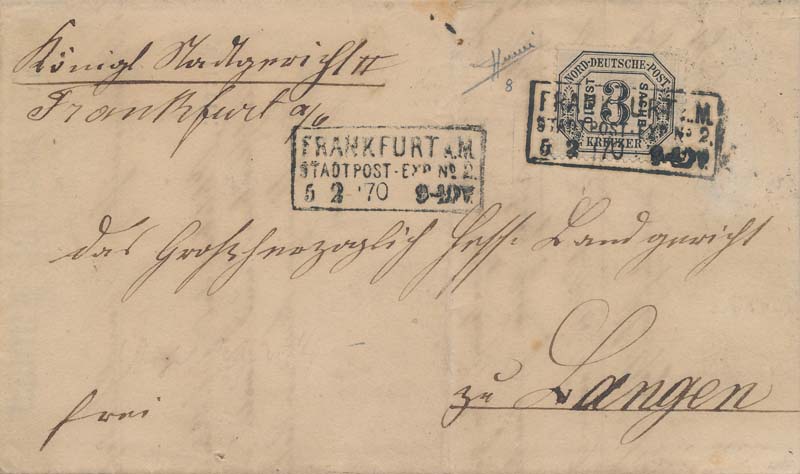 Königl Stadtgericht II
Frankfurt a/
8
NORD-DEUTSCHE-POST
DIENST SACHE
3
KREUZER
FRANKFURT A.M.
STADTPOST-EXP. No 2.
5 2 '70 9-10V.
FRANKFURT A.M.
STADTPOST-EXP No 2.
5 2 '70 9-10V.
das Großherzoglich Hess: Landgericht
zu Langen
frei